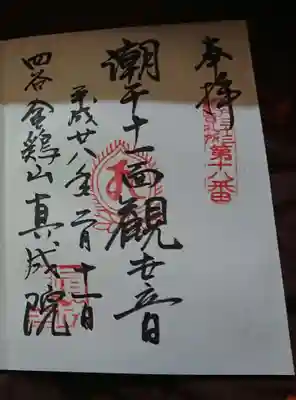 奉拝
第十八番
潮干十一面観世音
平成廿八年二月十一日
四谷金鶏山真成院